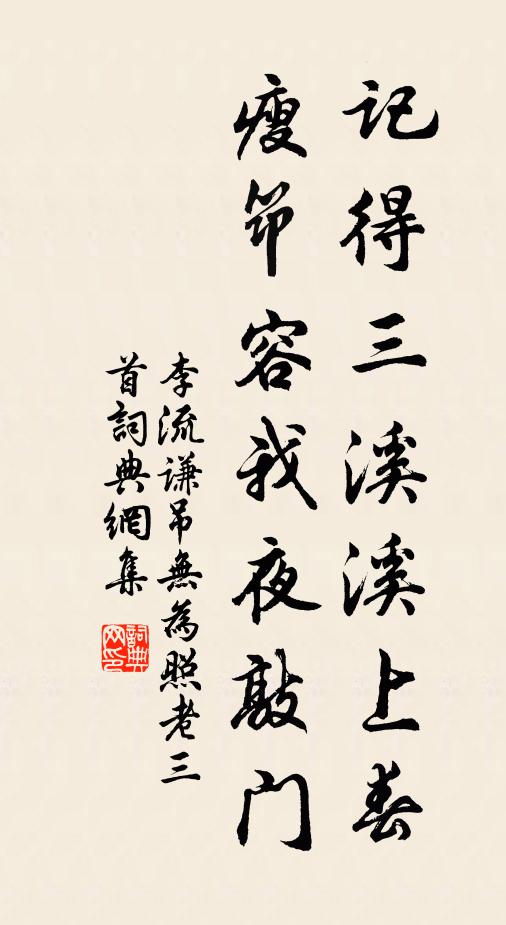 記得三溪溪上春
瘦筇容我夜敲門
李流謙吊無為照老三
首詞典網集
詞典網印